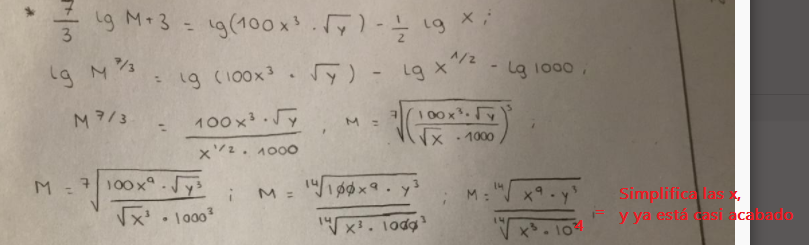 * 7/3 lg M+3 = lg(100x³ · √y) - 1/2 lg x ;
lg M^7/3 = lg (100x³ · √y) - lg x^1/2 - lg 1000 ,
M^7/3 = (100x³ · √y)/(x^1/2 · 1000) , M = ⁷√((100x³ · √y)/(√x · 1000))³ ;
M = ⁷√(100x⁹ · √y³)/(√x³ · 1000³) ; M = ¹⁴√(100x⁹ · y³)/¹⁴√(x³ · 1000³) ; M = ¹⁴√(x⁹ · y³)/¹⁴√(x³ · 10
Simplifica las x,
y ya está casi acabado